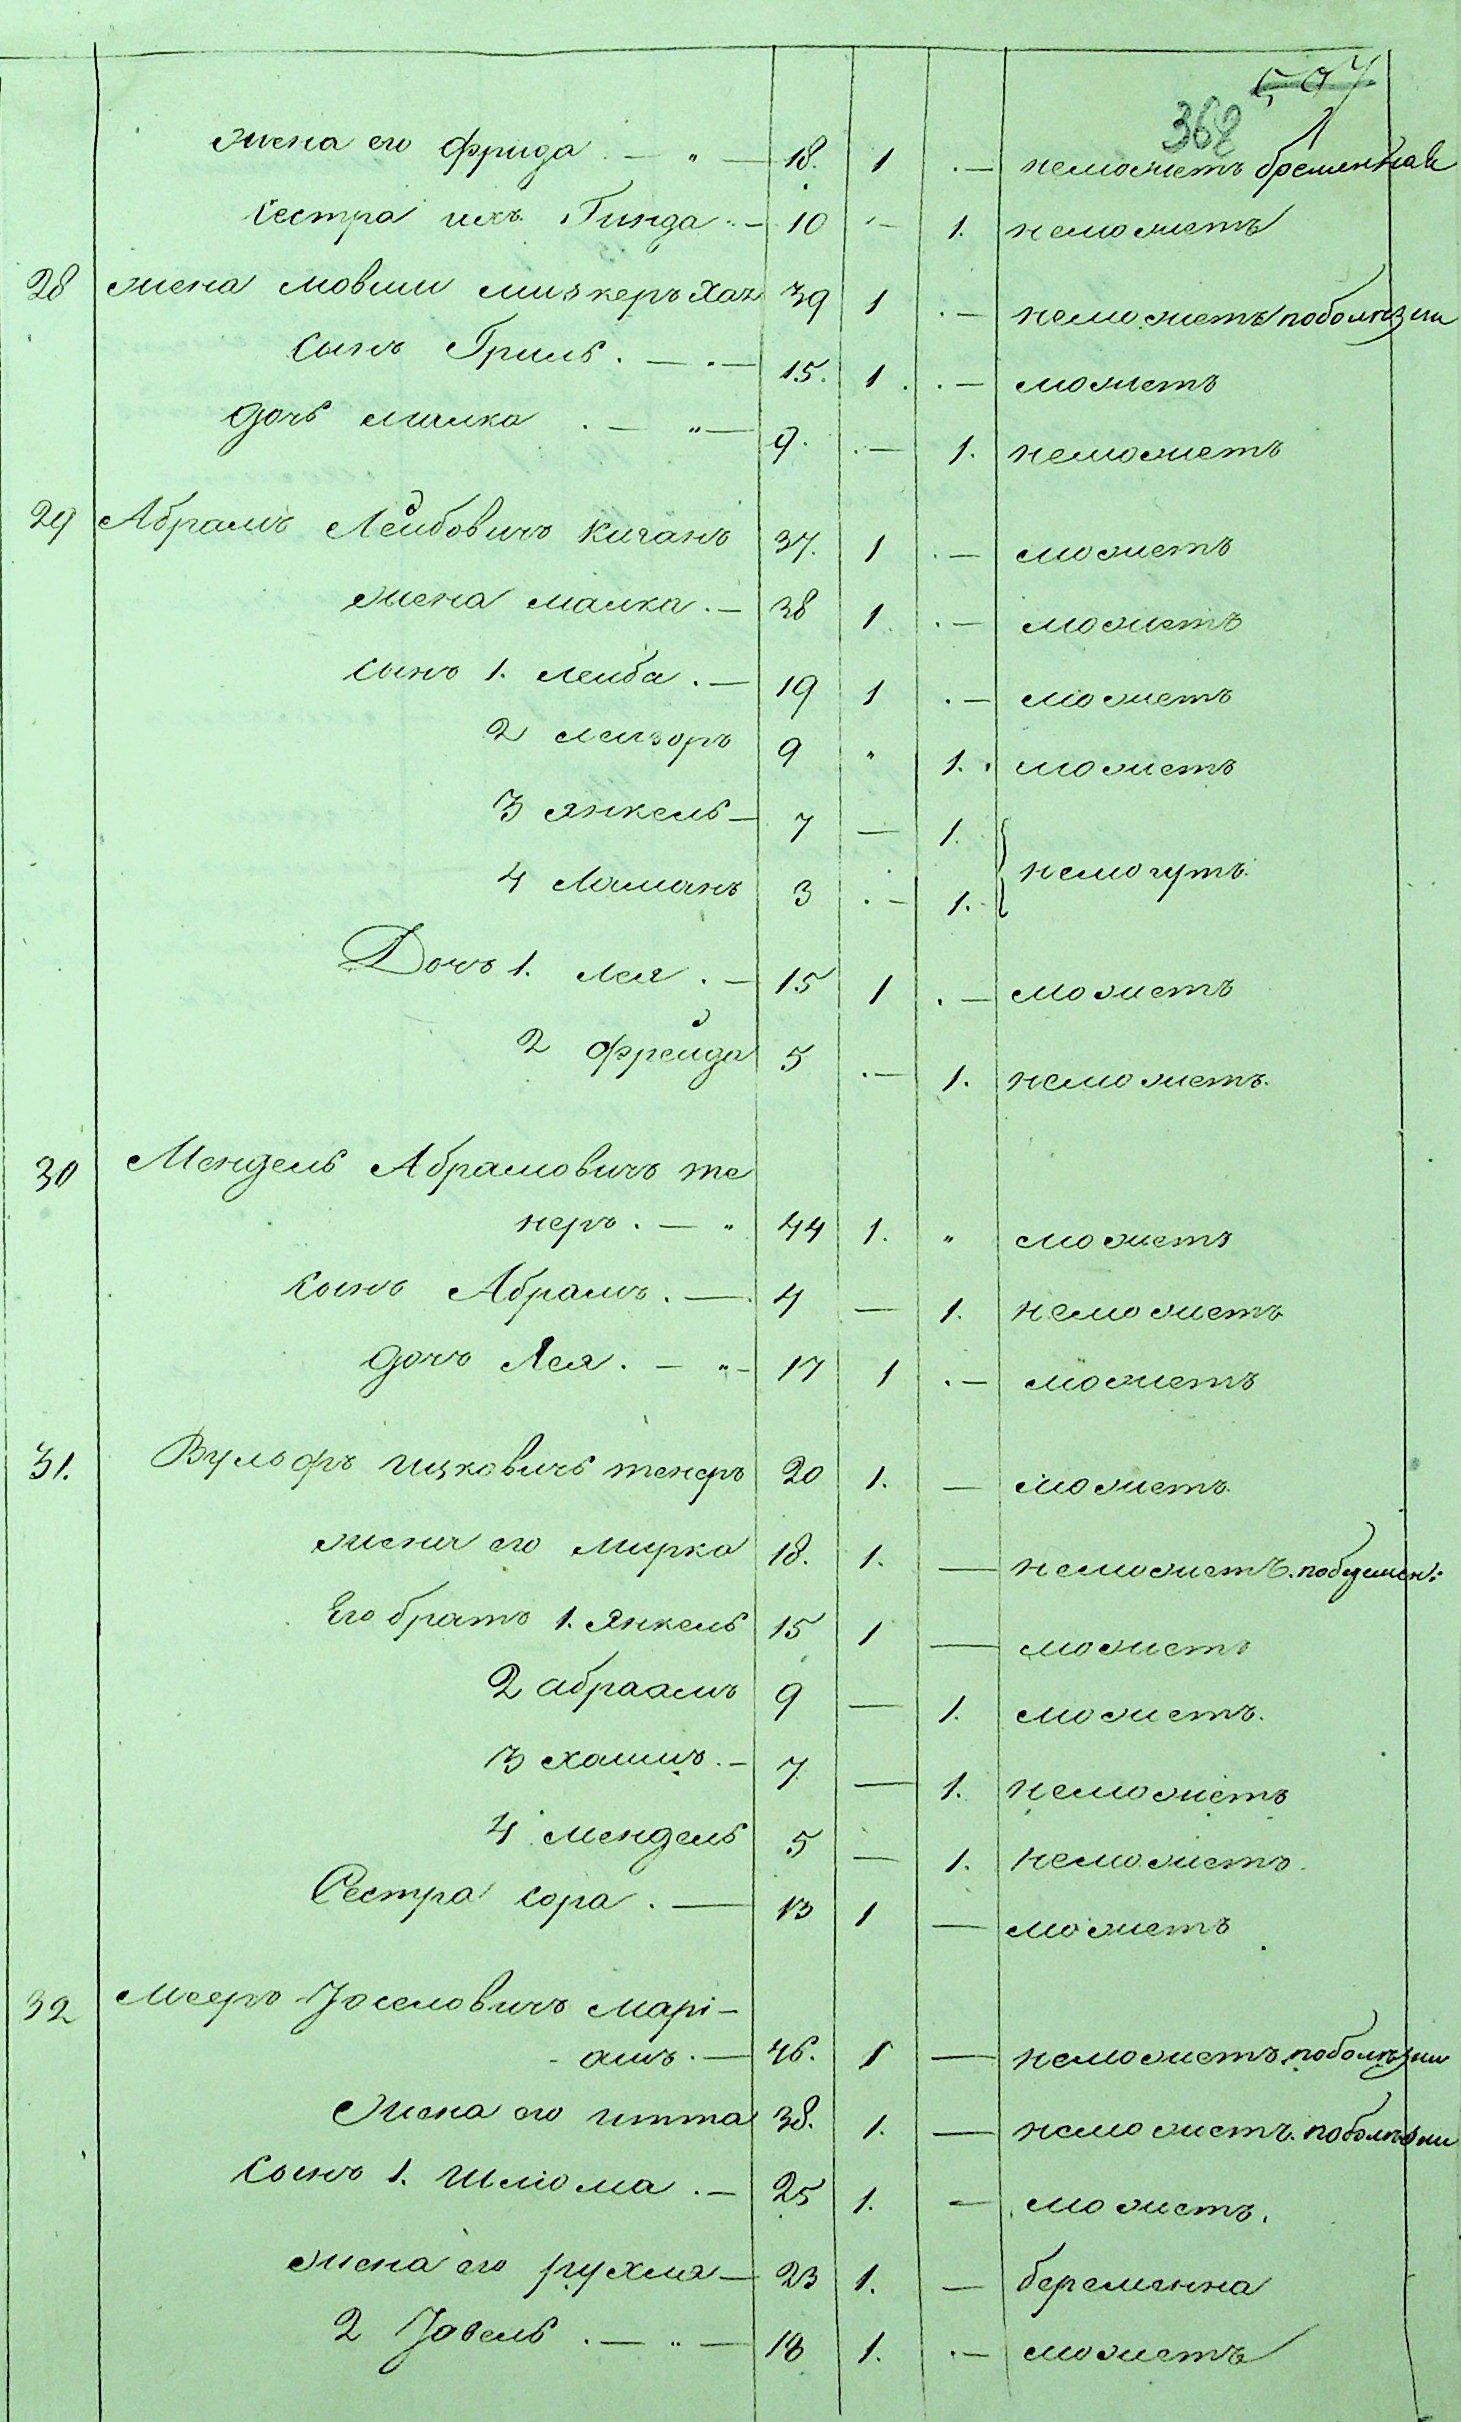 507
362
жена его Фрида . — " — 18. 1 . — неможетъ бременная
Сестра ихъ Гинда . — 10 . — 1. неможетъ
28 жена Мовши Мизкеръ Хая 39 1 . — неможетъ поболѣзни
Сынъ Гриль . — . — 15. 1 . — можетъ
дочь Малка . — " — 9. . — 1. неможетъ
29 Абрамъ Лейбовичъ Киганъ 37. 1 . — можетъ
жена Малка . — 38 1 . — можетъ
Сынъ 1. Леиба . — 19 1 . — можетъ
2 Леизоръ 9 " 1. можетъ
3 Янкель — 7 — 1.
немогутъ.
4 Ламанъ 3 . — 1.
Дочь 1. Лея . — 15 1 . — можетъ
2 Фрейда 5 . — 1. неможетъ.
30 Мендель Абрамовичъ Те
неръ . — " 44 1. " можетъ
Сынъ Абрамъ . — 4 — 1. неможетъ
дочь Лея . — " — 17 1 . — можетъ
31. Вульфъ Ицковичъ Тенеръ 20 1. — можетъ.
жена его Мирка 18. 1. — неможетъ.
Его братъ 1. Янкель 15 1 — можетъ
2 Абраамъ 9 — 1. можетъ.
3 Хаимъ . — 7 — 1. неможетъ
4 Мендель 5 — 1. неможетъ.
Сестра Сора . — 13 1 — можетъ
32 Мееръ Іоселовичъ Марі-
амъ . — 46. 1 — неможетъ поболѣзни
Жена его Итта 38. 1. — неможетъ. поболѣзни
Сынъ 1. Шлюма . — 25 1. — можетъ.
жена его Рухля — 23 1. — беременна
2 Іосель . — " — 18 1. . — можетъ